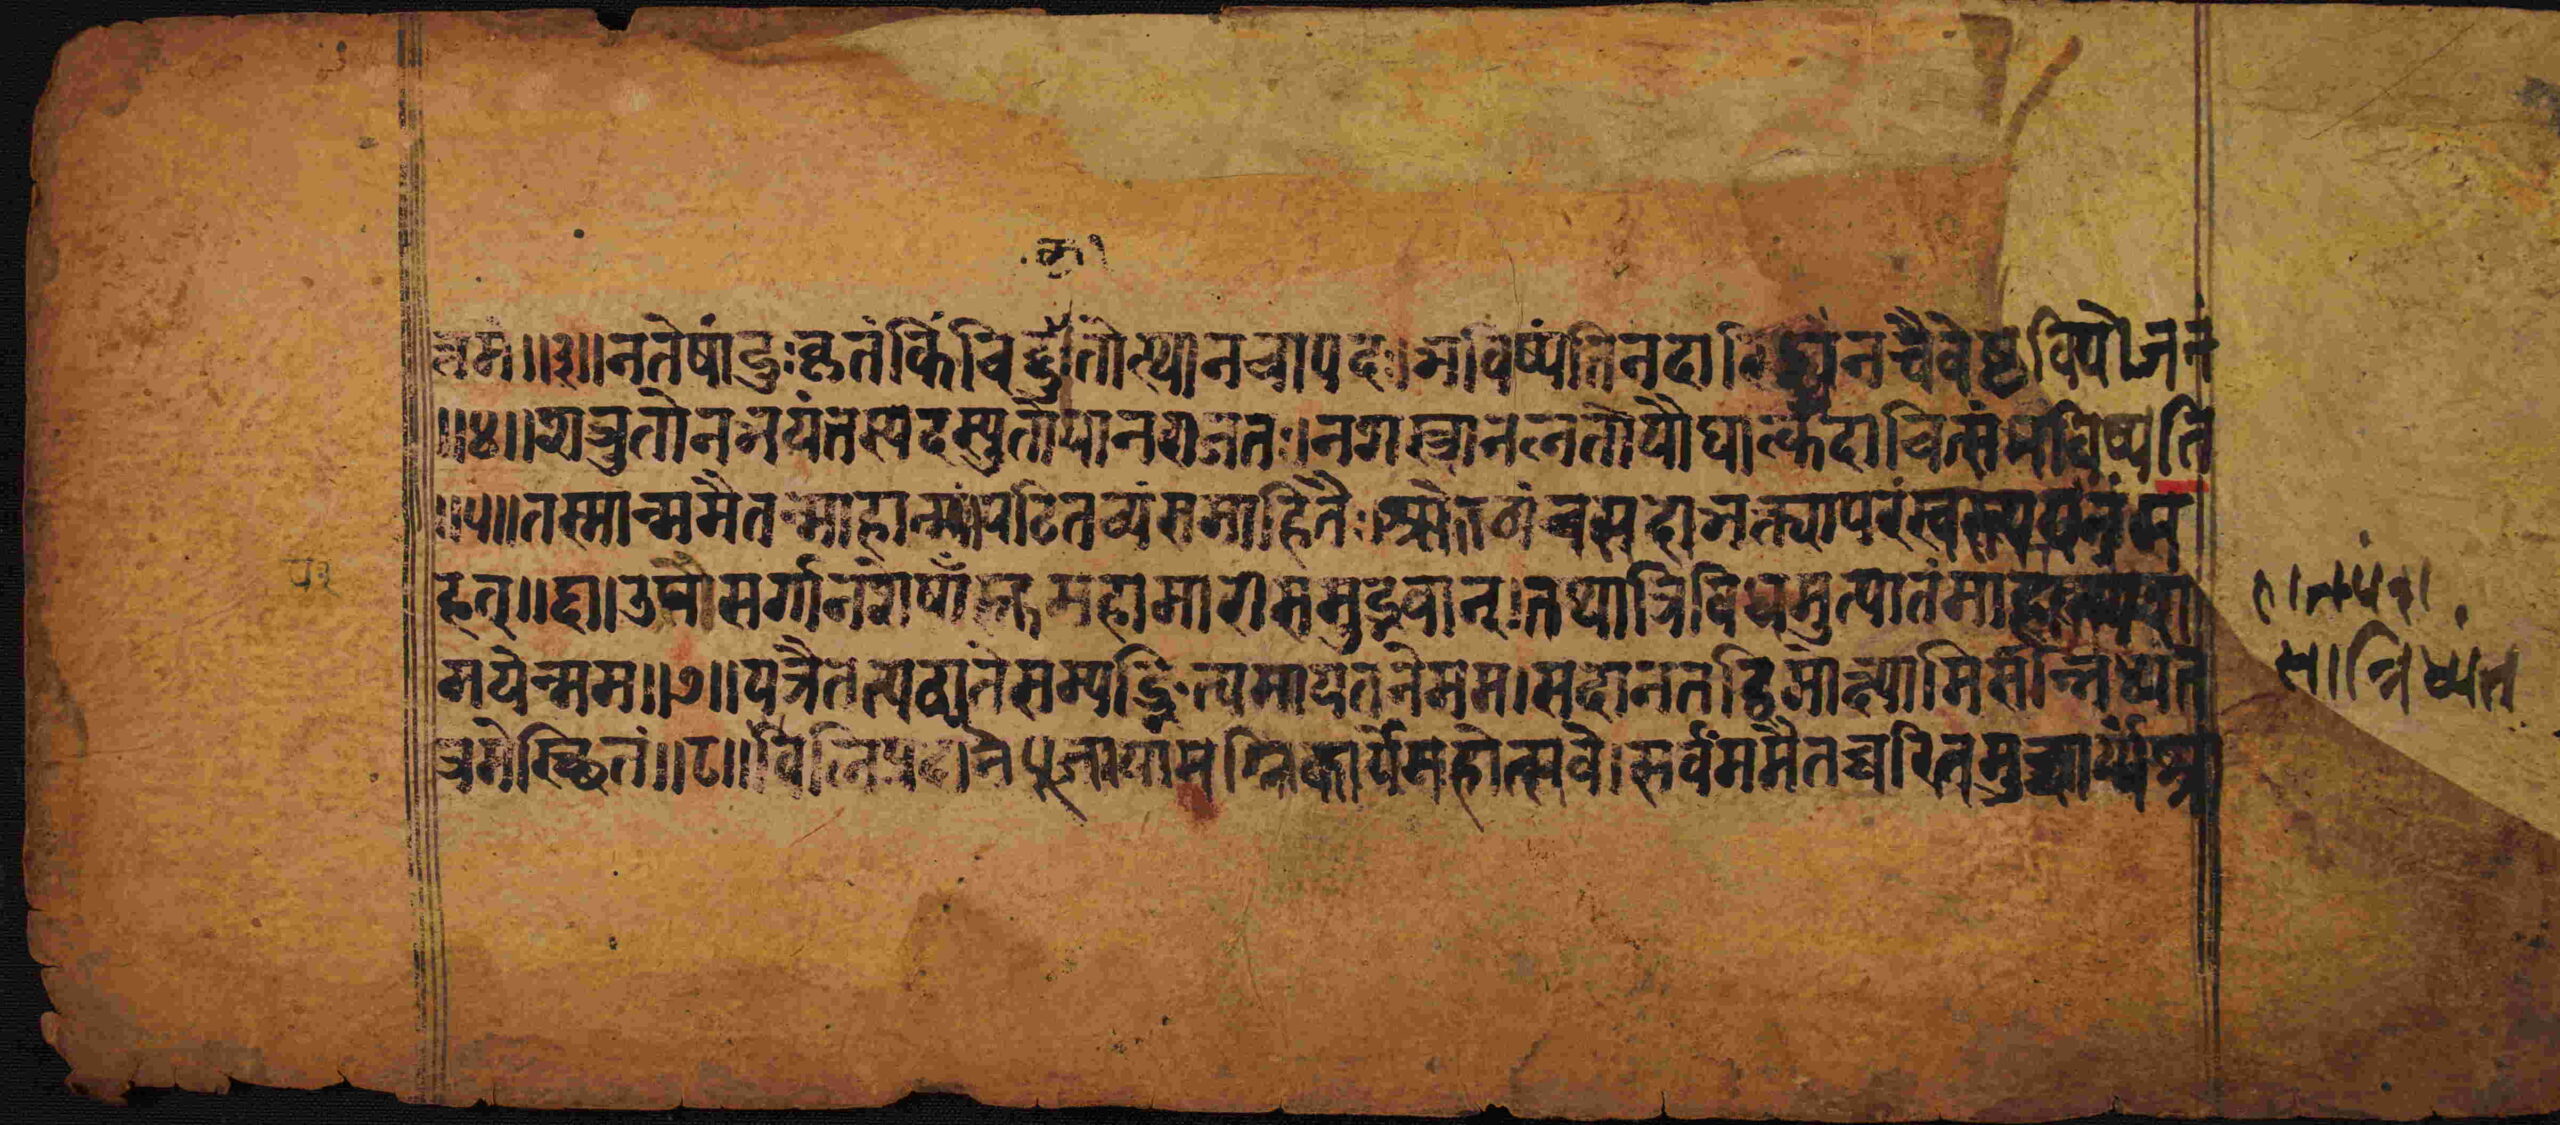 क
त्तमं॥३॥नतेषांदुःकृतंकिंचिद्दुःतोत्थानचापदः।भविष्यंतिनदारिद्र्यंनचैवेष्टवियोजनं
॥४॥शत्रुतोनभयंतस्यदस्युतोवानराजतः।नशस्त्रानलतोयौघात्कदाचित्संभविष्यति
॥५॥तस्मान्ममैतन्माहात्म्यंपठितव्यंसमाहितैः।श्रोतव्यंचसदाभक्त्यापरंस्वस्त्ययनंम
हत्॥६॥उपसर्गानशेषाँस्तुमहामारीसमुद्भवान्।तथात्रिविधमुत्पातंमाहात्म्यंश
मयेन्मम॥७॥यत्रैतत्पठ्यतेसम्यङ्नित्यमायतनेमम।सदानतद्विमोक्ष्यामिसांन्निध्यंत
त्रमेस्थितं॥८॥वलिप्रदानेपूजायामग्निकार्येमहोत्सवे।सर्वंममैतच्चरितमुच्चार्य्यंश्रा
५२
सांन्निध्यंत